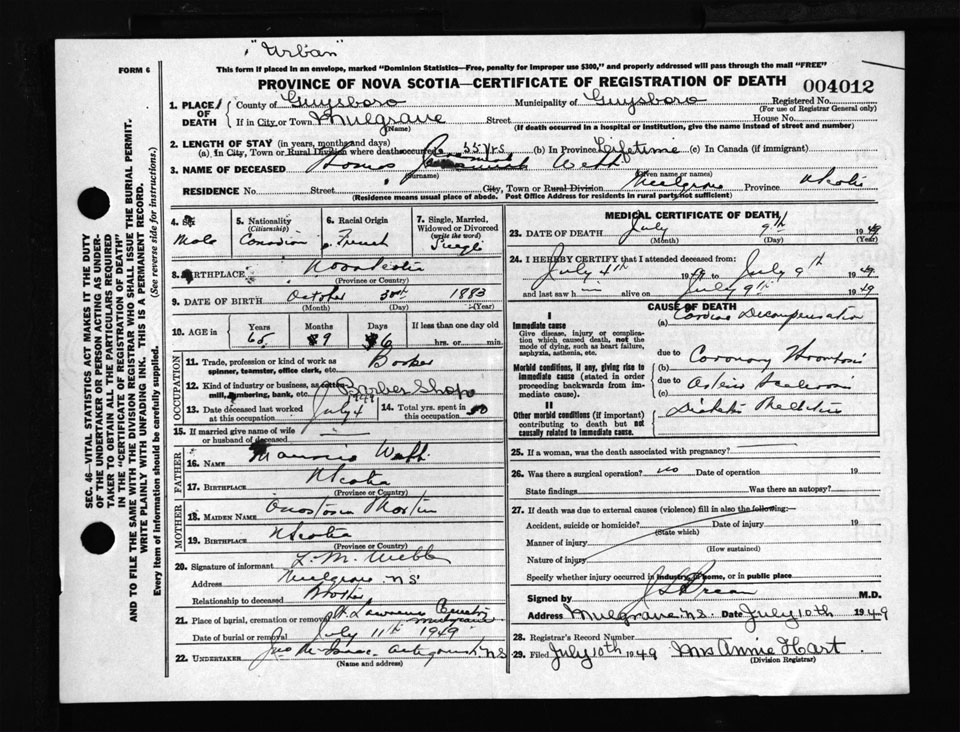 "Urban"
FORM 6
This form if placed in an envelope, marked "Dominion Statistics—Free, penalty for improper use $300," and properly addressed will pass through the mail "FREE"
PROVINCE OF NOVA SCOTIA—CERTIFICATE OF REGISTRATION OF DEATH
004012
1. PLACE OF DEATH
County of Guysboro Municipality of Guysboro Registered No.
(For use of Registrar General only)
If in City or Town Mulgrave Street House No.
(Name) (If death occurred in a hospital or institution, give the name instead of street and number)
2. LENGTH OF STAY (in years, months and days)
(a) In City, Town or Rural Division where death occurred 55 yrs (b) In Province Lifetime (c) In Canada (if immigrant)
3. NAME OF DECEASED Webb
(Surname) (Given name or names)
RESIDENCE No. Street City, Town or Rural Division Mulgrave Province N Scotia
(Residence means usual place of abode. Post Office Address for residents in rural parts not sufficient)
4. Sex Male
5. Nationality (Citizenship) Canadian
6. Racial Origin French
7. Single, Married, Widowed or Divorced (write the word) Single
8. BIRTHPLACE Nova Scotia
(Province or Country)
9. DATE OF BIRTH October 30th 1883
(Month) (Day) (Year)
10. AGE in Years Months Days If less than one day old
65 9 hrs. or min.
OCCUPATION
11. Trade, profession or kind of work as spinner, teamster, office clerk, etc.
12. Kind of industry or business, as cotton mill, lumbering, bank, etc. Barber Shop
13. Date deceased last worked at this occupation July 4 1949
14. Total yrs. spent in this occupation 50
15. If married give name of wife or husband of deceased
FATHER
16. Name Webb
17. Birthplace N Scotia
(Province or Country)
MOTHER
18. Maiden Name Martin
19. Birthplace N Scotia
(Province or Country)
20. Signature of informant L. M. Webb
Address Mulgrave NS
Relationship to deceased Brother
21. Place of burial, cremation or removal St Lawrence Mulgrave
Date of burial or removal July 11th 1949
22. UNDERTAKER Antigonish NS
(Name and address)
MEDICAL CERTIFICATE OF DEATH
23. DATE OF DEATH July 9th 1949
(Month) (Day) (Year)
24. I HEREBY CERTIFY that I attended deceased from:
July 4th 1949 to July 9th 1949
and last saw h im alive on July 9th 1949
CAUSE OF DEATH
I
Immediate cause
Give disease, injury or complication which caused death, not the mode of dying, such as heart failure, asphyxia, asthenia, etc.
(a) Cardiac Decompensation
due to
Morbid conditions, if any, giving rise to immediate cause (stated in order proceeding backwards from immediate cause).
(b) Coronary Thrombosis
due to
(c) Arterio Sclerosis
II
Other morbid conditions (if important) contributing to death but not causally related to immediate cause.
Diabetes Mellitus
25. If a woman, was the death associated with pregnancy?
26. Was there a surgical operation? no Date of operation 19
State findings Was there an autopsy?
27. If death was due to external causes (violence) fill in also the following:—
Accident, suicide or homicide? Date of injury 19
(State which)
Manner of injury
(How sustained)
Nature of injury
Specify whether injury occurred in industry, in home, or in public place
Signed by M.D.
Address Mulgrave N.S. Date July 10th 1949
28. Registrar's Record Number
29. Filed July 10th 1949 Mrs Annie Hart
(Division Registrar)
SEC. 46—VITAL STATISTICS ACT MAKES IT THE DUTY
OF THE UNDERTAKER OR PERSON ACTING AS UNDER-
TAKER TO OBTAIN ALL THE PARTICULARS REQUIRED
IN THE "CERTIFICATE OF REGISTRATION OF DEATH"
AND TO FILE THE SAME WITH THE DIVISION REGISTRAR WHO SHALL ISSUE THE BURIAL PERMIT.
WRITE PLAINLY WITH UNFADING INK. THIS IS A PERMANENT RECORD.
Every item of information should be carefully supplied. (See reverse side for instructions.)